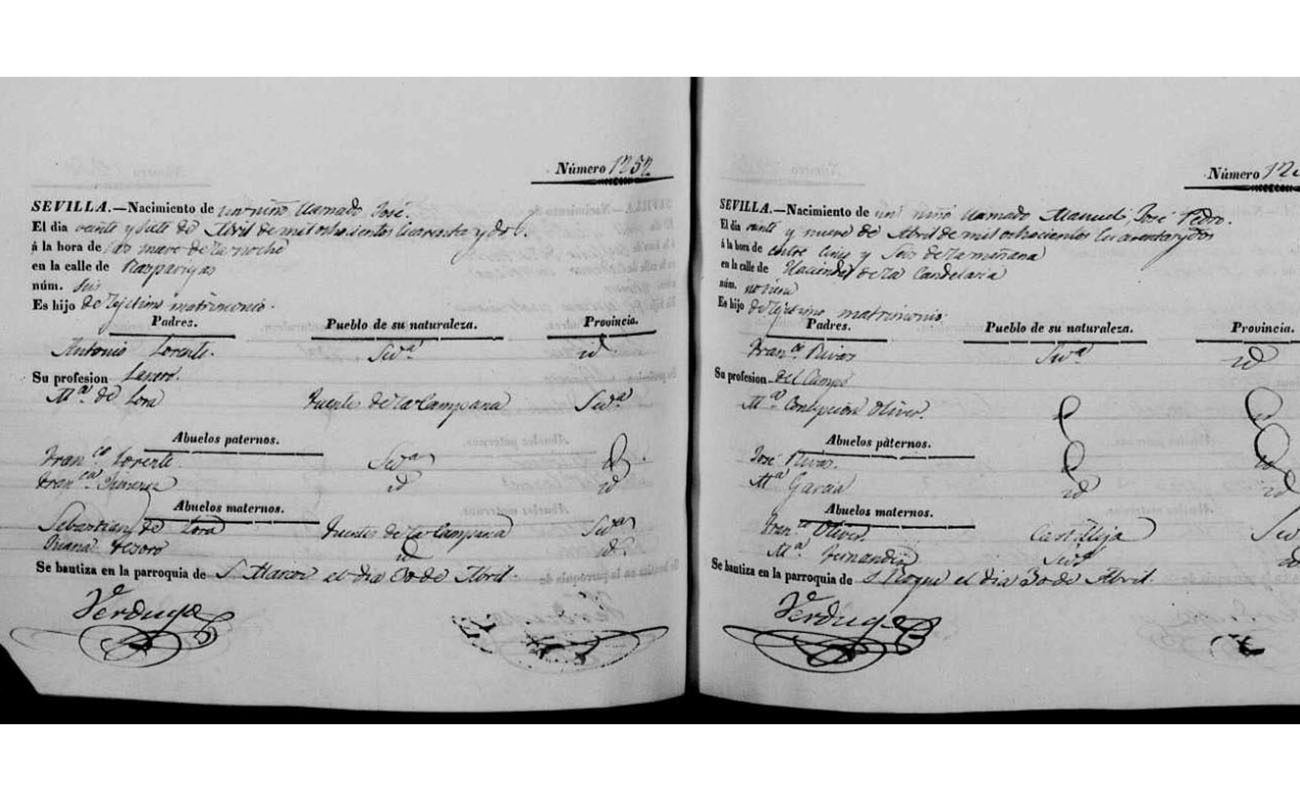 Número 1252
SEVILLA.—Nacimiento de un niño llamado José.
El dia veinte y siete de Abril de mil ochocientos cuarenta y dos.
á la hora de las nueve de la noche
en la calle de
núm. seis
Es hijo de lejitimo matrimonio.
Padres. Pueblo de su naturaleza. Provincia.
Antonio Lorente. Sevª id
Su profesion
Mª de Lora Fuentes de la Campana Sevª
Abuelos paternos.
Franco Lorente. Sevª
Franca id id
Abuelos maternos.
Sebastian de Lora Fuentes de la Campana Sevª
Juana Tesoro id id
Se bautiza en la parroquia de S. Marcos el dia 30 de Abril.
Verdugo
Número
SEVILLA.—Nacimiento de un niño llamado Manuel, José Pedro.
El dia veinte y nueve de Abril de mil ochocientos cuarenta y dos
á la hora de entre cinco y seis de la mañana
en la calle de Hacienda de la Candelaria
núm.
Es hijo de lejitimo matrimonio
Padres. Pueblo de su naturaleza. Provincia.
Franco Rivas Sevª id
Su profesion del Campo
Mª Concepcion Oliver.
Abuelos paternos.
José Rivas.
Mª Garcia id id
Abuelos maternos.
Franco Oliver. Castilleja
Mª Fernandez Sevª
Se bautiza en la parroquia de S. Roque el dia 30 de Abril.
Verdugo